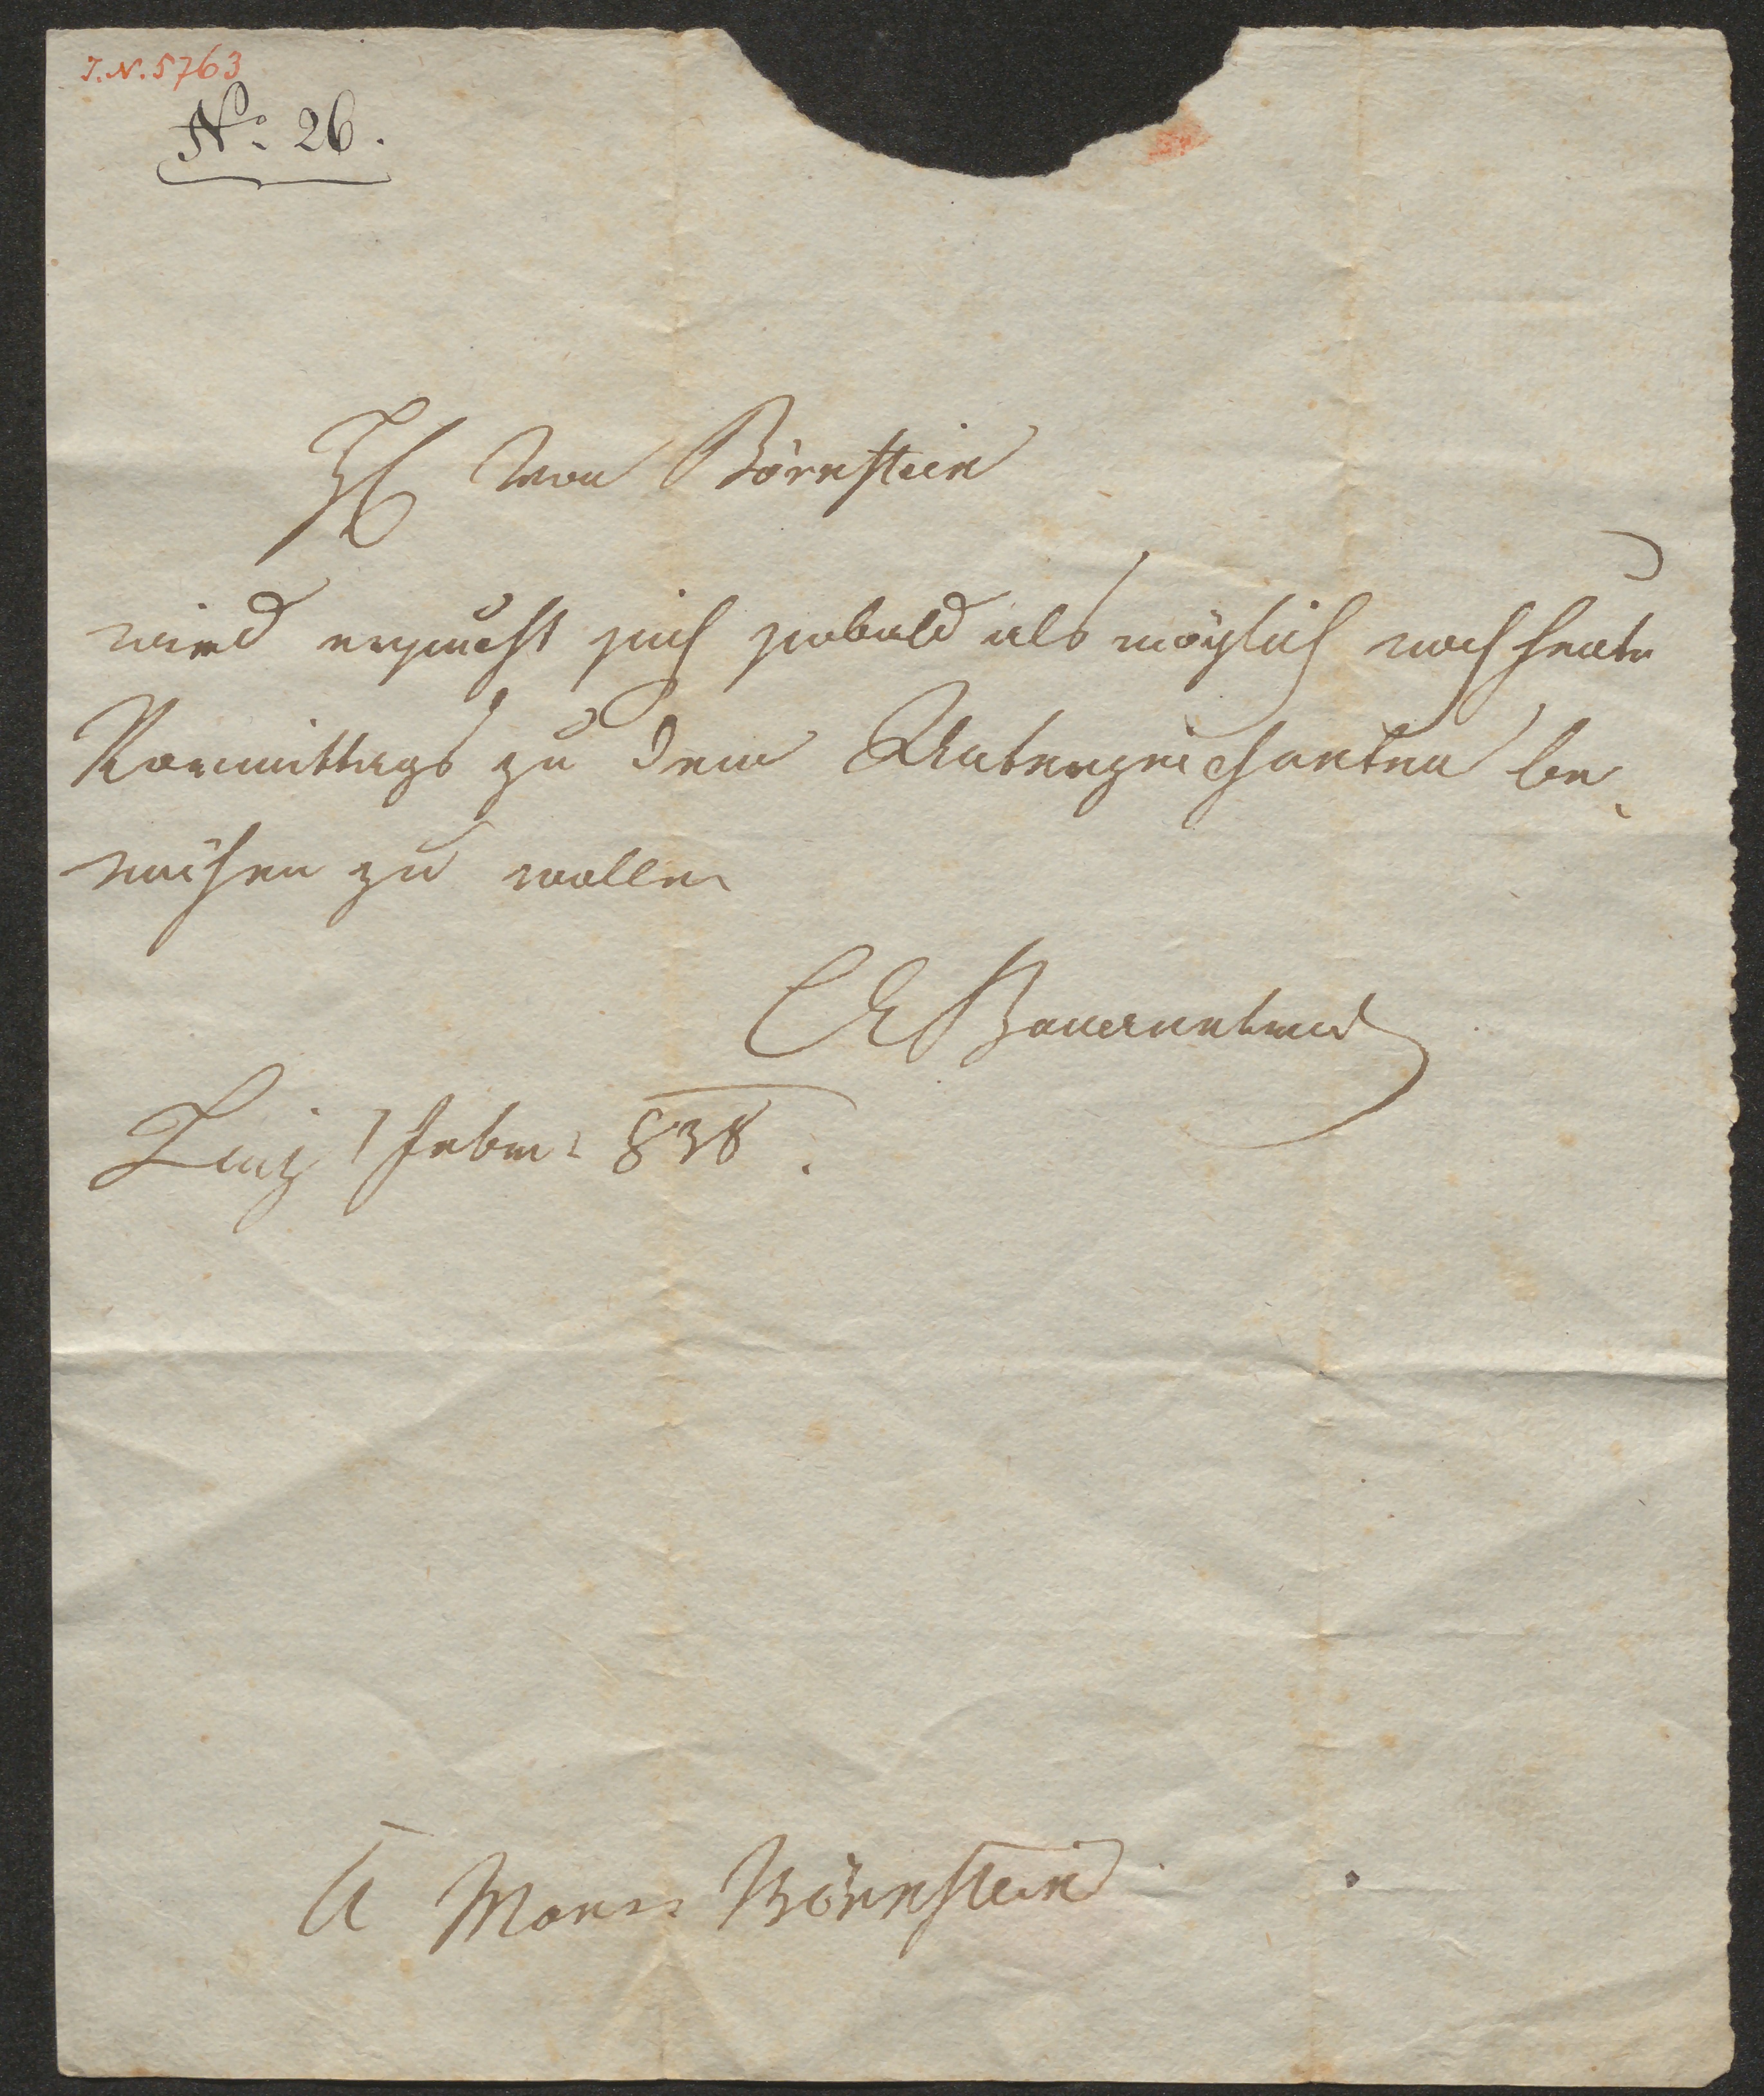 I.N. 5763
No. 26.
H von Börnstein
wird ersucht sich sobald als möglich noch heute
Vormittags zu dem Unterzeichneten be-
mühen zu wollen
Linz 1 Febr: 838.
A Mons: Börnstein